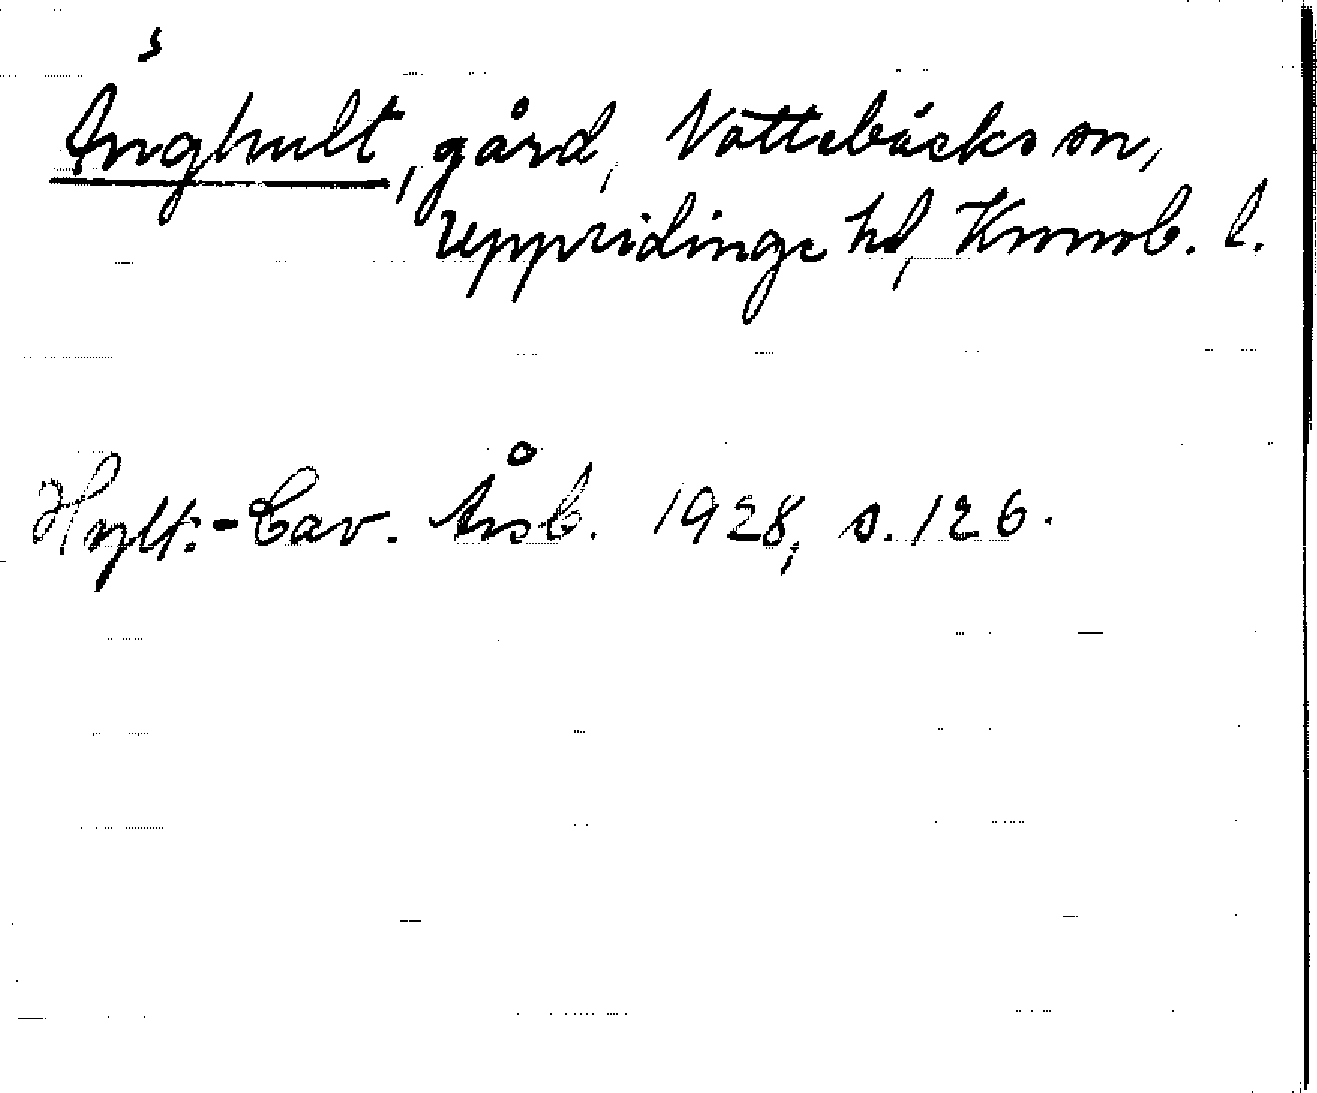 Änghult, gård, Nottebäcks sn,
Uppvidinge hd, Kronob. l.
Hylt.-Cav. Årsb. 1928, s. 126.